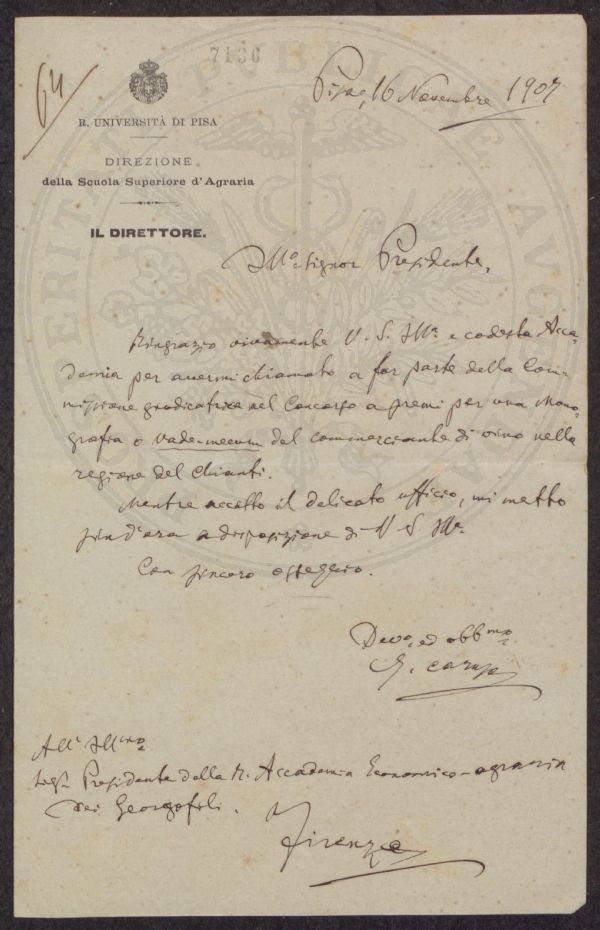 64
7136
R. UNIVERSITÀ DI PISA
DIREZIONE
della Scuola Superiore d'Agraria
IL DIRETTORE.
Pisa, 16 Novembre 1907
Illo. Signor Presidente,
Ringrazio vivamente V. S. Illa. e codesta Acca-
demia per avermi chiamato a far parte della Com-
missione giudicatrice nel Concorso a premi per una Mono-
grafia o vade-mecum del commerciante di vino nella
regione del Chianti.
Mentre accetto il delicato ufficio, mi metto
sin d'ora a disposizione di V. S. Illa.
Con sincero ossequio.
Devo. ed obbmo.
G. Caruso
All' Illmo.
Sigr. Presidente della R. Accademia Economico-agraria
dei Georgofili.
Firenze